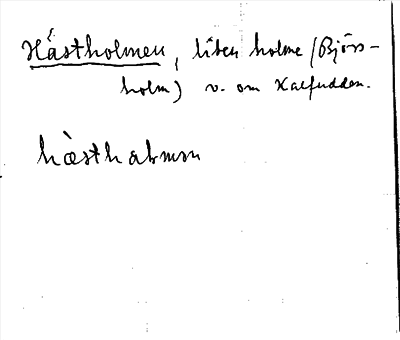 Hästholmen, liten holme (Björs-
holm) v. om Kalfudden.
hàsthaɫmən